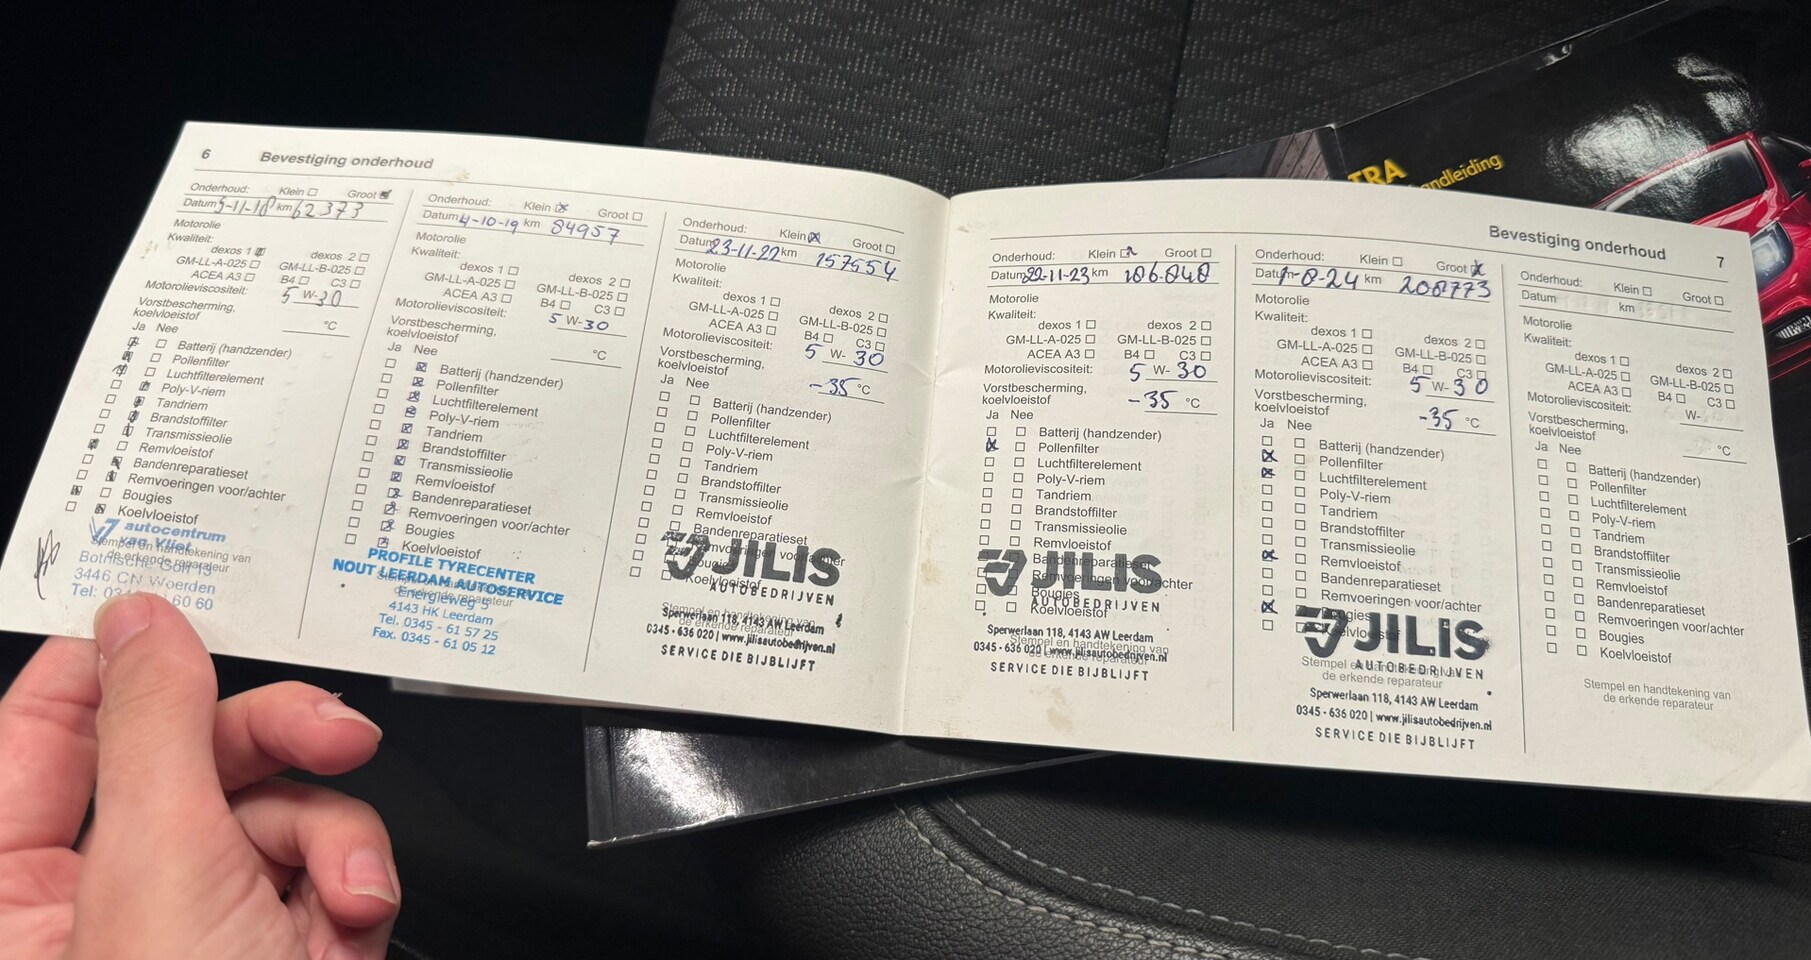 6 Bevestiging onderhoud
Onderhoud: Klein Groot
Datum 5-11-18 km 62373
Motorolie
Kwaliteit:
dexos 1 dexos 2
GM-LL-A-025 GM-LL-B-025
ACEA A3 B4 C3
Motorolieviscositeit: 5 W-30
Vorstbescherming,
koelvloeistof °C
Ja Nee
Batterij (handzender)
Pollenfilter
Luchtfilterelement
Poly-V-riem
Tandriem
Brandstoffilter
Transmissieolie
Remvloeistof
Bandenreparatieset
Remvoeringen voor/achter
Bougies
Koelvloeistof
autocentrum
van Vliet
Stempel en handtekening van
de erkende reparateur
Botnische Golf 13
3446 CN Woerden
Tel: 60 60
Onderhoud: Klein Groot
Datum 4-10-19 km 84957
Motorolie
Kwaliteit:
dexos 1 dexos 2
GM-LL-A-025 GM-LL-B-025
ACEA A3 B4 C3
Motorolieviscositeit: 5 W-30
Vorstbescherming,
koelvloeistof °C
Ja Nee
Batterij (handzender)
Pollenfilter
Luchtfilterelement
Poly-V-riem
Tandriem
Brandstoffilter
Transmissieolie
Remvloeistof
Bandenreparatieset
Remvoeringen voor/achter
Bougies
Koelvloeistof
PROFILE TYRECENTER
NOUT LEERDAM AUTOSERVICE
Energieweg 5
4143 HK Leerdam
Tel. 0345 - 61 57 25
Fax. 0345 - 61 05 12
Onderhoud: Klein Groot
Datum 23-11-22 km 157554
Motorolie
Kwaliteit:
dexos 1 dexos 2
GM-LL-A-025 GM-LL-B-025
ACEA A3 B4 C3
Motorolieviscositeit: 5 W- 30
Vorstbescherming,
koelvloeistof -35 °C
Ja Nee
Batterij (handzender)
Pollenfilter
Luchtfilterelement
Poly-V-riem
Tandriem
Brandstoffilter
Transmissieolie
Remvloeistof
Bandenreparatieset
Remvoeringen voor/achter
Bougies
Koelvloeistof
JILIS
AUTOBEDRIJVEN
Stempel en handtekening van
de erkende reparateur
Sperwerlaan 118, 4143 AW Leerdam
0345 - 636 020 | www.jilisautobedrijven.nl
SERVICE DIE BIJBLIJFT
Bevestiging onderhoud 7
Onderhoud: Klein Groot
Datum 22-11-23 km 186.848
Motorolie
Kwaliteit:
dexos 1 dexos 2
GM-LL-A-025 GM-LL-B-025
ACEA A3 B4 C3
Motorolieviscositeit: 5 W- 30
Vorstbescherming,
koelvloeistof -35 °C
Ja Nee
Batterij (handzender)
Pollenfilter
Luchtfilterelement
Poly-V-riem
Tandriem
Brandstoffilter
Transmissieolie
Remvloeistof
Bandenreparatieset
Remvoeringen voor/achter
Bougies
Koelvloeistof
JILIS
AUTOBEDRIJVEN
Sperwerlaan 118, 4143 AW Leerdam
Stempel en handtekening van
de erkende reparateur
0345 - 636 020 | www.jilisautobedrijven.nl
SERVICE DIE BIJBLIJFT
Onderhoud: Klein Groot
Datum 1-8-24 km 208773
Motorolie
Kwaliteit:
dexos 1 dexos 2
GM-LL-A-025 GM-LL-B-025
ACEA A3 B4 C3
Motorolieviscositeit: 5 W-30
Vorstbescherming,
koelvloeistof -35 °C
Ja Nee
Batterij (handzender)
Pollenfilter
Luchtfilterelement
Poly-V-riem
Tandriem
Brandstoffilter
Transmissieolie
Remvloeistof
Bandenreparatieset
Remvoeringen voor/achter
Bougies
Koelvloeistof
JILIS
AUTOBEDRIJVEN
Stempel en handtekening van
de erkende reparateur
Sperwerlaan 118, 4143 AW Leerdam
0345 - 636 020 | www.jilisautobedrijven.nl
SERVICE DIE BIJBLIJFT
Onderhoud: Klein Groot
Datum km
Motorolie
Kwaliteit:
dexos 1 dexos 2
GM-LL-A-025 GM-LL-B-025
ACEA A3 B4 C3
Motorolieviscositeit: W-
Vorstbescherming,
koelvloeistof °C
Ja Nee
Batterij (handzender)
Pollenfilter
Luchtfilterelement
Poly-V-riem
Tandriem
Brandstoffilter
Transmissieolie
Remvloeistof
Bandenreparatieset
Remvoeringen voor/achter
Bougies
Koelvloeistof
Stempel en handtekening van
de erkende reparateur